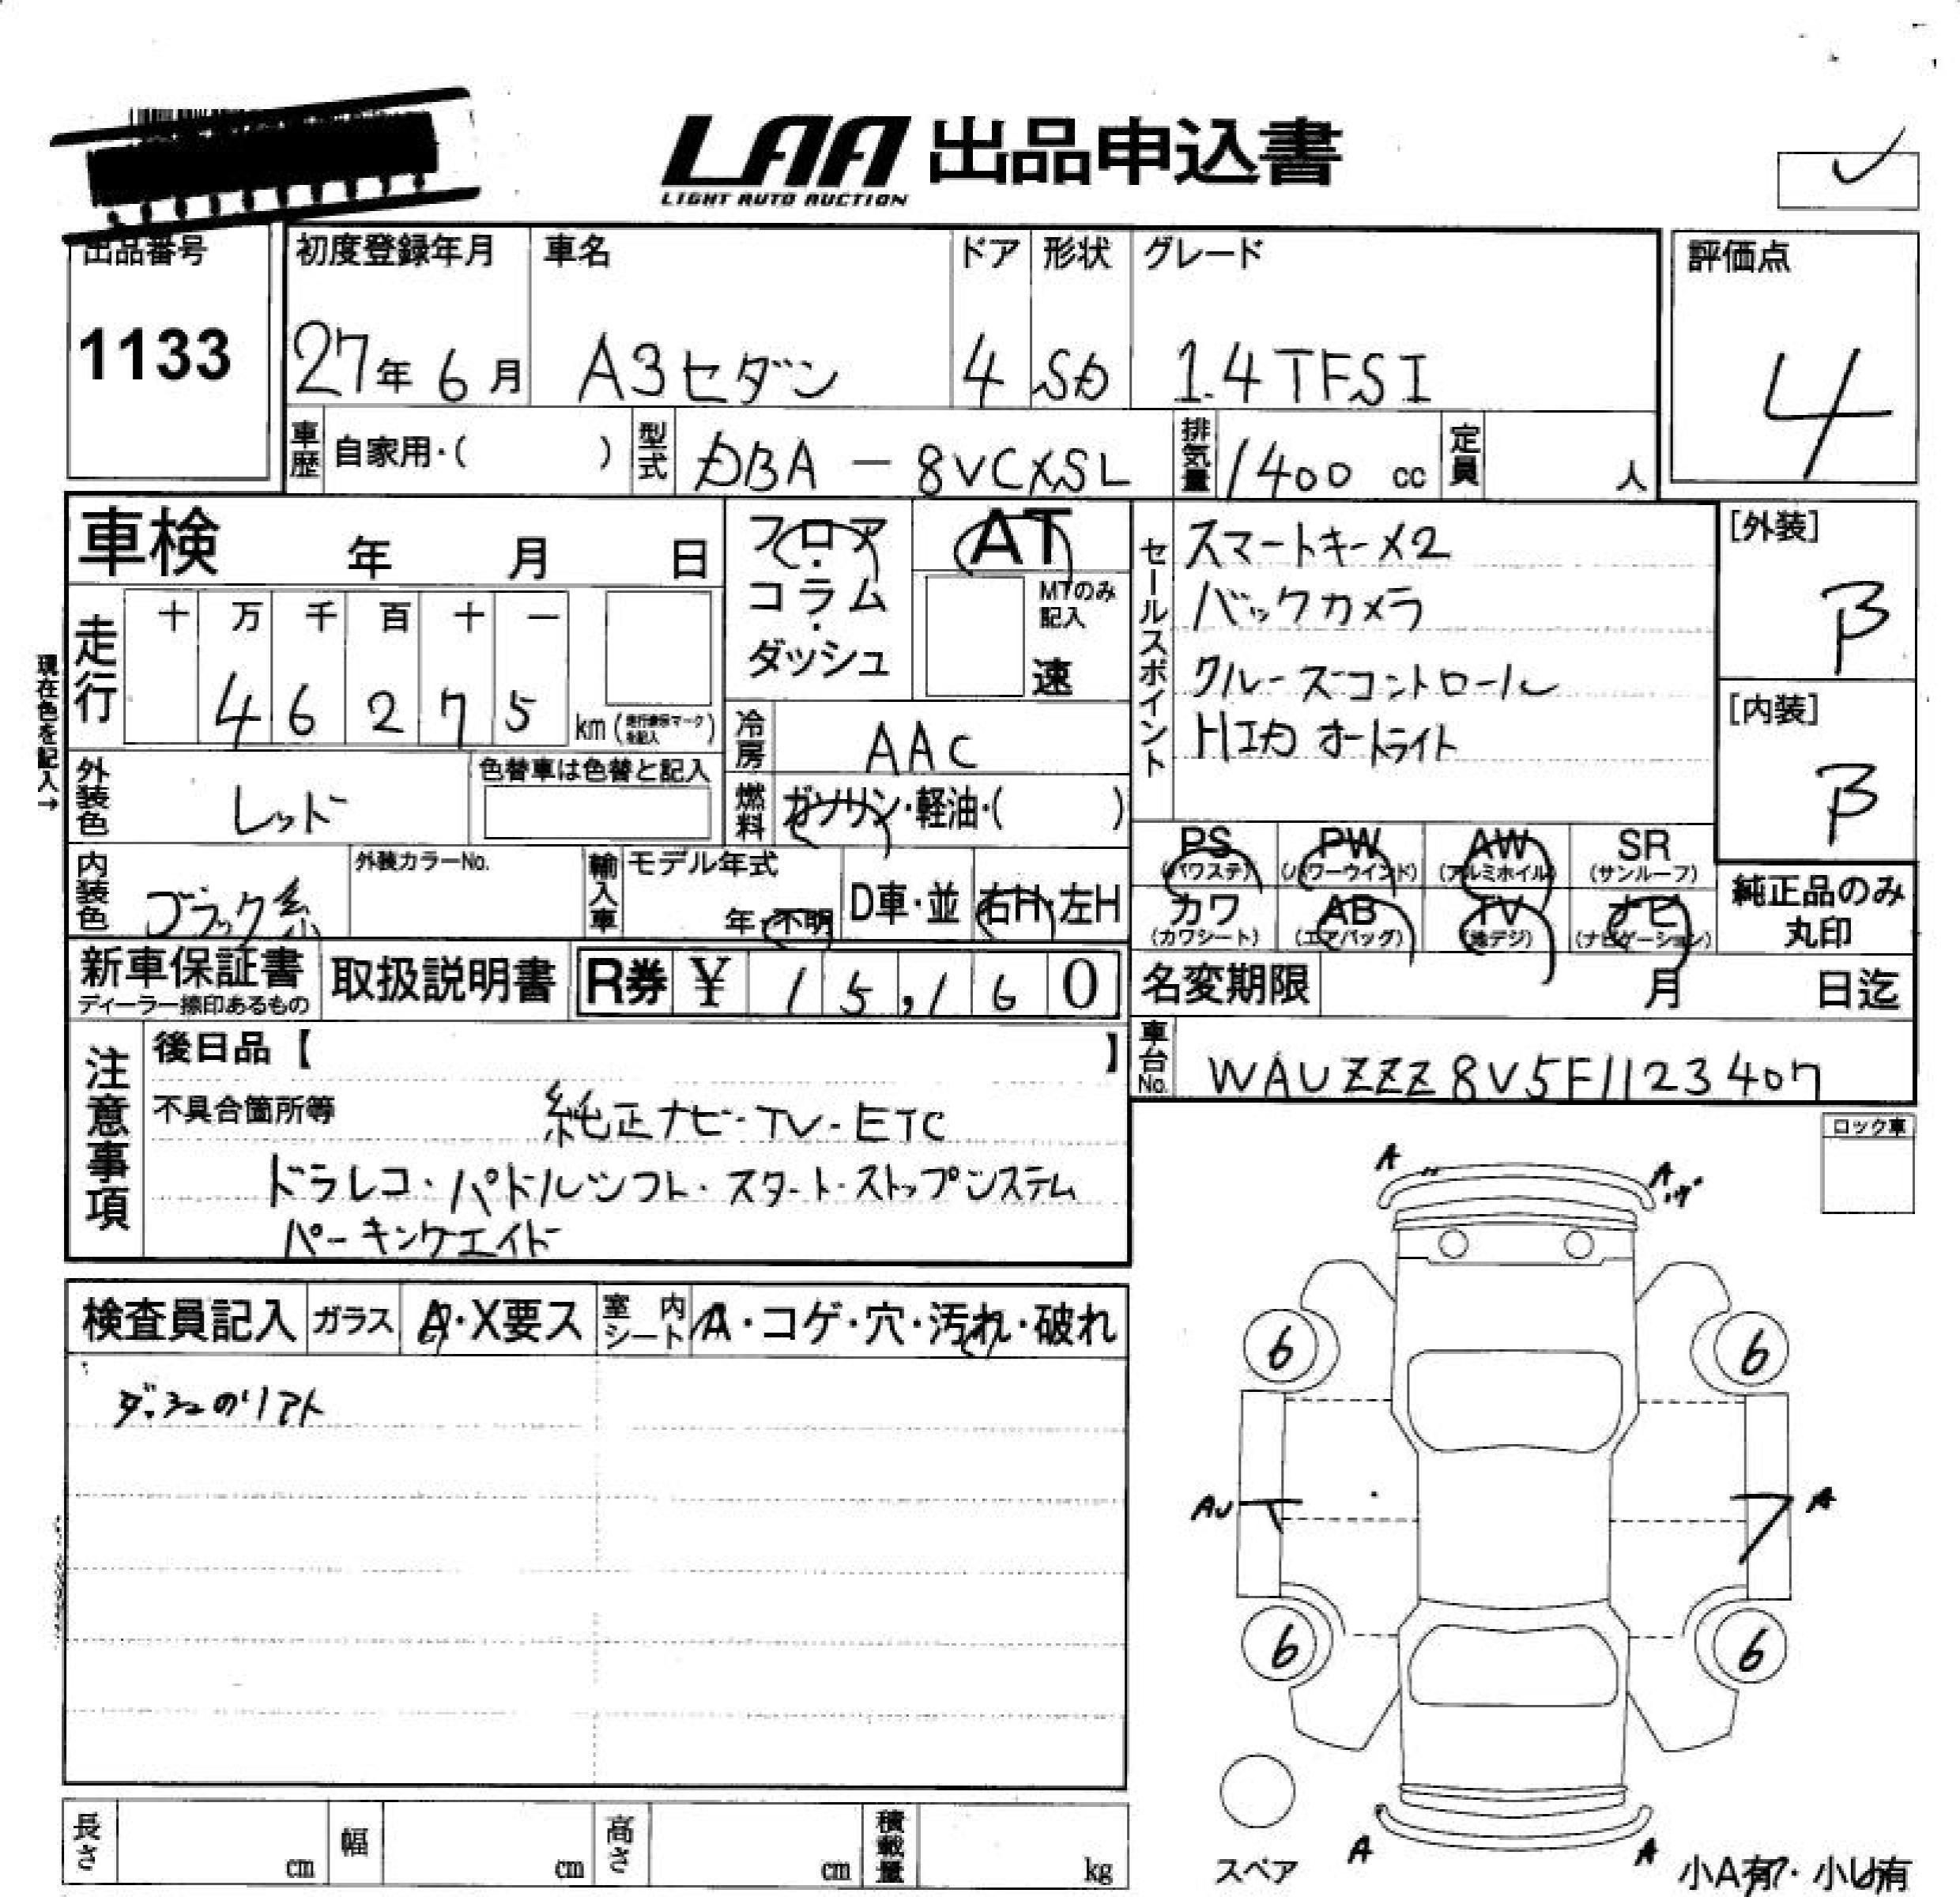 LAA 出品申込書
LIGHT AUTO AUCTION
出品番号 初度登録年月 車名 ドア 形状 グレード 評価点
1133 27年 6月 A3セダン 4 SD 1.4TFSI 4
車歴 自家用・( ) 型式 DBA-8VCXSL 排気量 1400 cc 定員 人
車検 年 月 日
フロア・コラム・ダッシュ
AT
MTのみ記入
速
セールスポイント
スマートキー×2
バックカメラ
クルーズコントロール
HID オートライト
[外装]
β
[内装]
β
現在色を記入→
走行 十 万 千 百 十 一
4 6 2 7 5 km (走行車保マークを記入)
冷房 AAC
外装色 レッド 色替車は色替と記入
燃料 ガソリン・軽油・( )
内装色 ブラック系 外装カラーNo. 輸入車 モデル年式 年・不明 D車・並 右H・左H
PS (パワステ) PW (パワーウインド) AW (アルミホイル) SR (サンルーフ)
カワ (カワシート) AB (エアバッグ) TV (地デジ) ナビ (ナビゲーション)
純正品のみ丸印
新車保証書 取扱説明書 R券 ¥ 15,160
ディーラー捺印あるもの
名変期限 月 日迄
車台No. WAUZZZ8V5F1123407
注意事項
後日品【 】
不具合箇所等 純正ナビ-TV-ETC
ドラレコ・パドルシフト・スタート・ストップシステム
パーキングエイド
ロック車
検査員記入 ガラス A・X要ス 室内シート A・コゲ・穴・汚れ・破れ
A
A
6 6
AU A
6 6
スペア
A A
小A有・小U有
長さ cm 幅 cm 高さ cm 積載量 kg